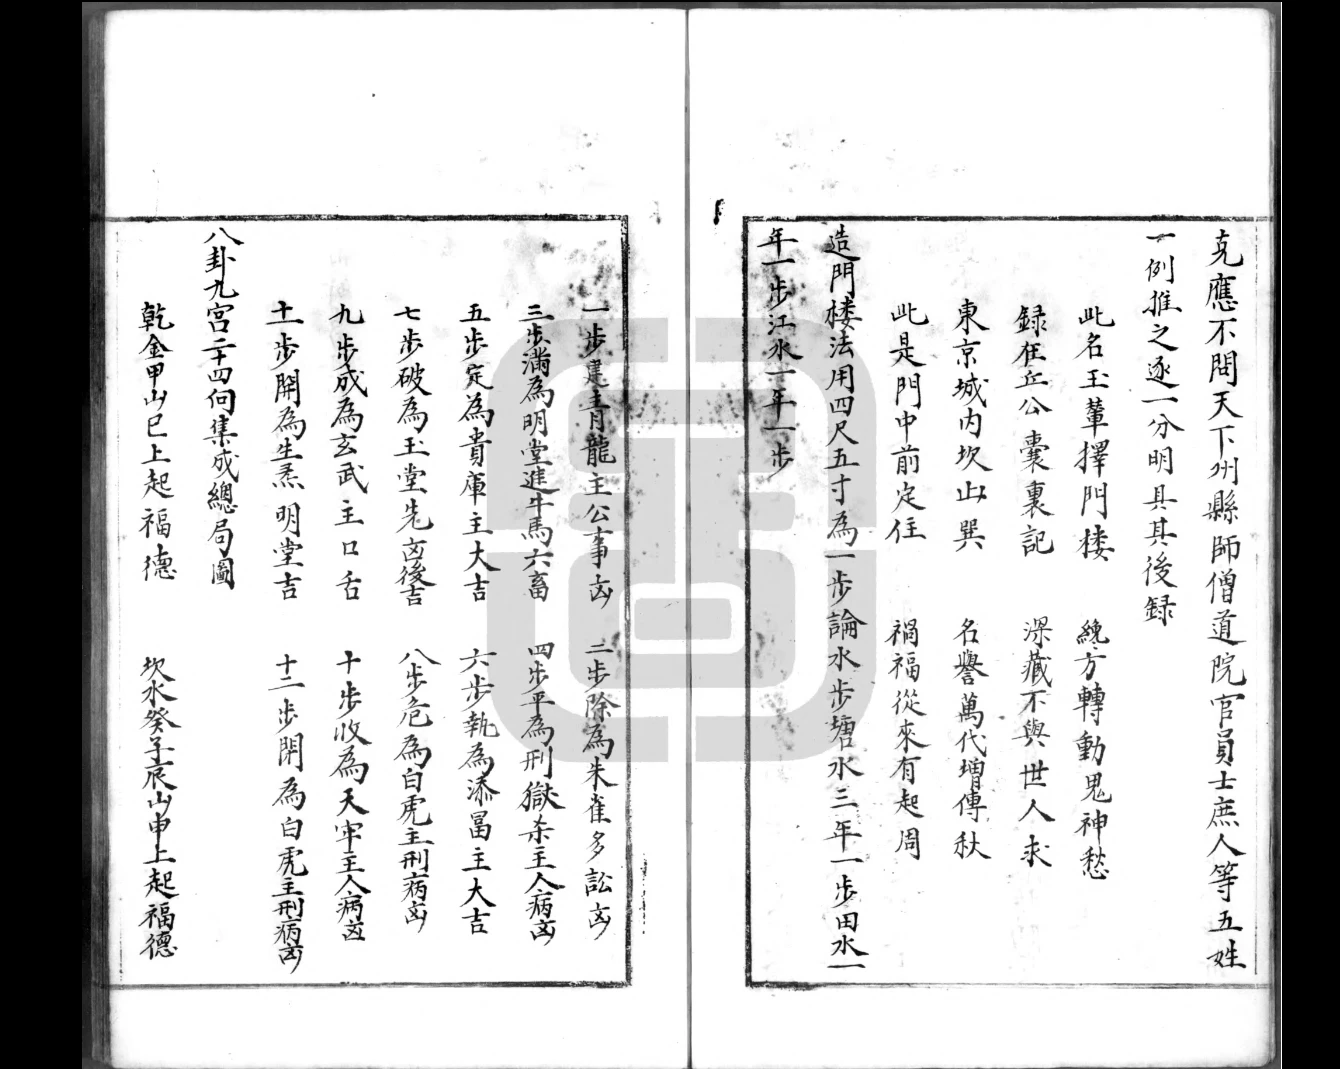 克應不問天下州縣師僧道院官員士庶人等五姓
一例推之逐一分明具其後録
此名玉輦擇門楼　纔方轉動鬼神愁
録在丘公囊裏記　深藏不與世人求
東京城内坎山巽　名譽萬代增傳秋
此是門中前定住　禍福從來有起周
造門楼法用四尺五寸為一步論水步塘水三年一步田水一
年一步江水一年一步
一步建青龍主公事凶　二步除為朱雀多訟凶
三步滿為明堂進牛馬六畜　四步平為刑獄杀主人病凶
五步定為貴庫主大吉　六步執為添冨主大吉
七步破為玉堂先凶後吉　八步危為白虎主刑病凶
九步成為玄武主口舌　十步收為天牢主人病凶
十一步開為生炁明堂吉　十二步閉為白虎主刑病凶
八卦九宫二十四向集成總局圖
乾金甲山巳上起福德　坎水癸子辰山申上起福德